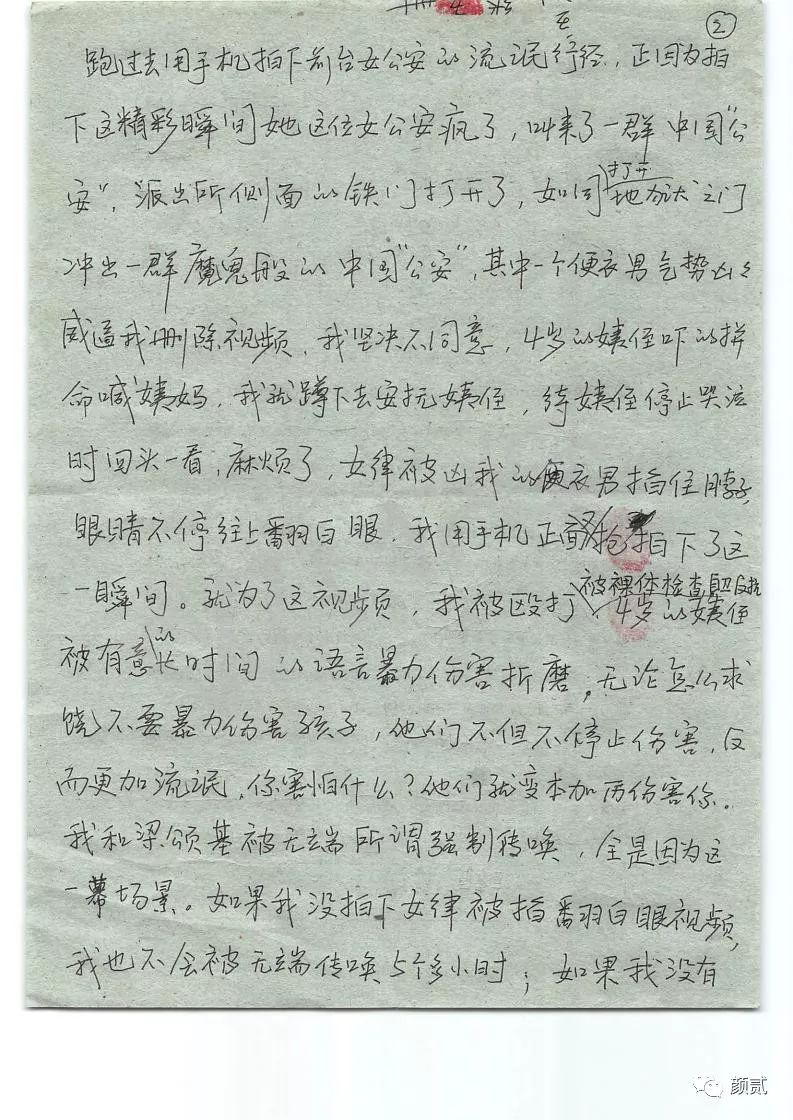 ②
跑过去用手机拍下前台女公安的流氓行径,正因为拍
下这精彩瞬间她这位女公安疯了,叫来了一群中国"公
安",派出所侧面的铁门打开了,如同打开地狱之门
冲出一群魔鬼般的中国"公安",其中一个便衣男气势凶凶
威逼我删除视频,我坚决不同意,4岁的姨侄吓的拼
命喊姨妈,我就蹲下去安抚姨侄,待姨侄停止哭泣
时回头一看,麻烦了,女律被凶我的便衣男掐住脖子,
眼睛不停往上翻白眼,我用手机正面抢拍下了这
一瞬间。就为了这视频,我被殴打、被裸体检查
4岁的姨侄
被有意的长时间的语言暴力伤害折磨,无论怎么求
饶不要暴力伤害孩子,他们不但不停止伤害,反
而更加流氓,你害怕什么?他们就变本加厉伤害你。
我和梁颂基被无端所谓强制传唤,全是因为这
一幕场景。如果我没拍下女律被掐翻白眼视频,
我也不会被无端传唤5个多小时;如果我没有
颜贰